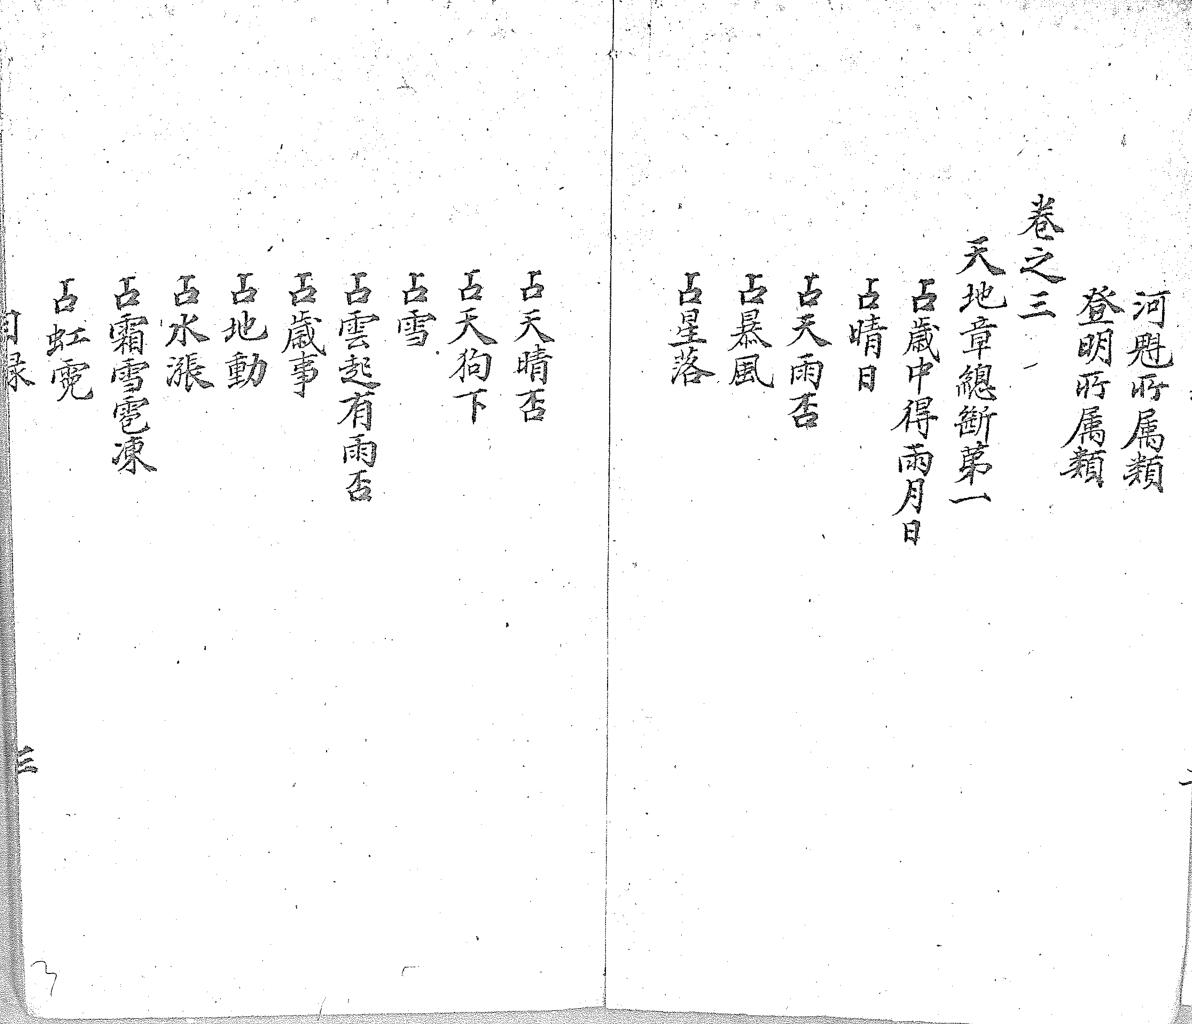 河魁所属類
登明所属類
卷之三
天地章總斷第一
占歲中得雨月日
占晴日
占天雨否
占暴風
占星落
占天晴否
占天狗下
占雪
占雲起有雨否
占歲事
占地動
占水漲
占霜雪雹凍
占虹霓
目録
三
3